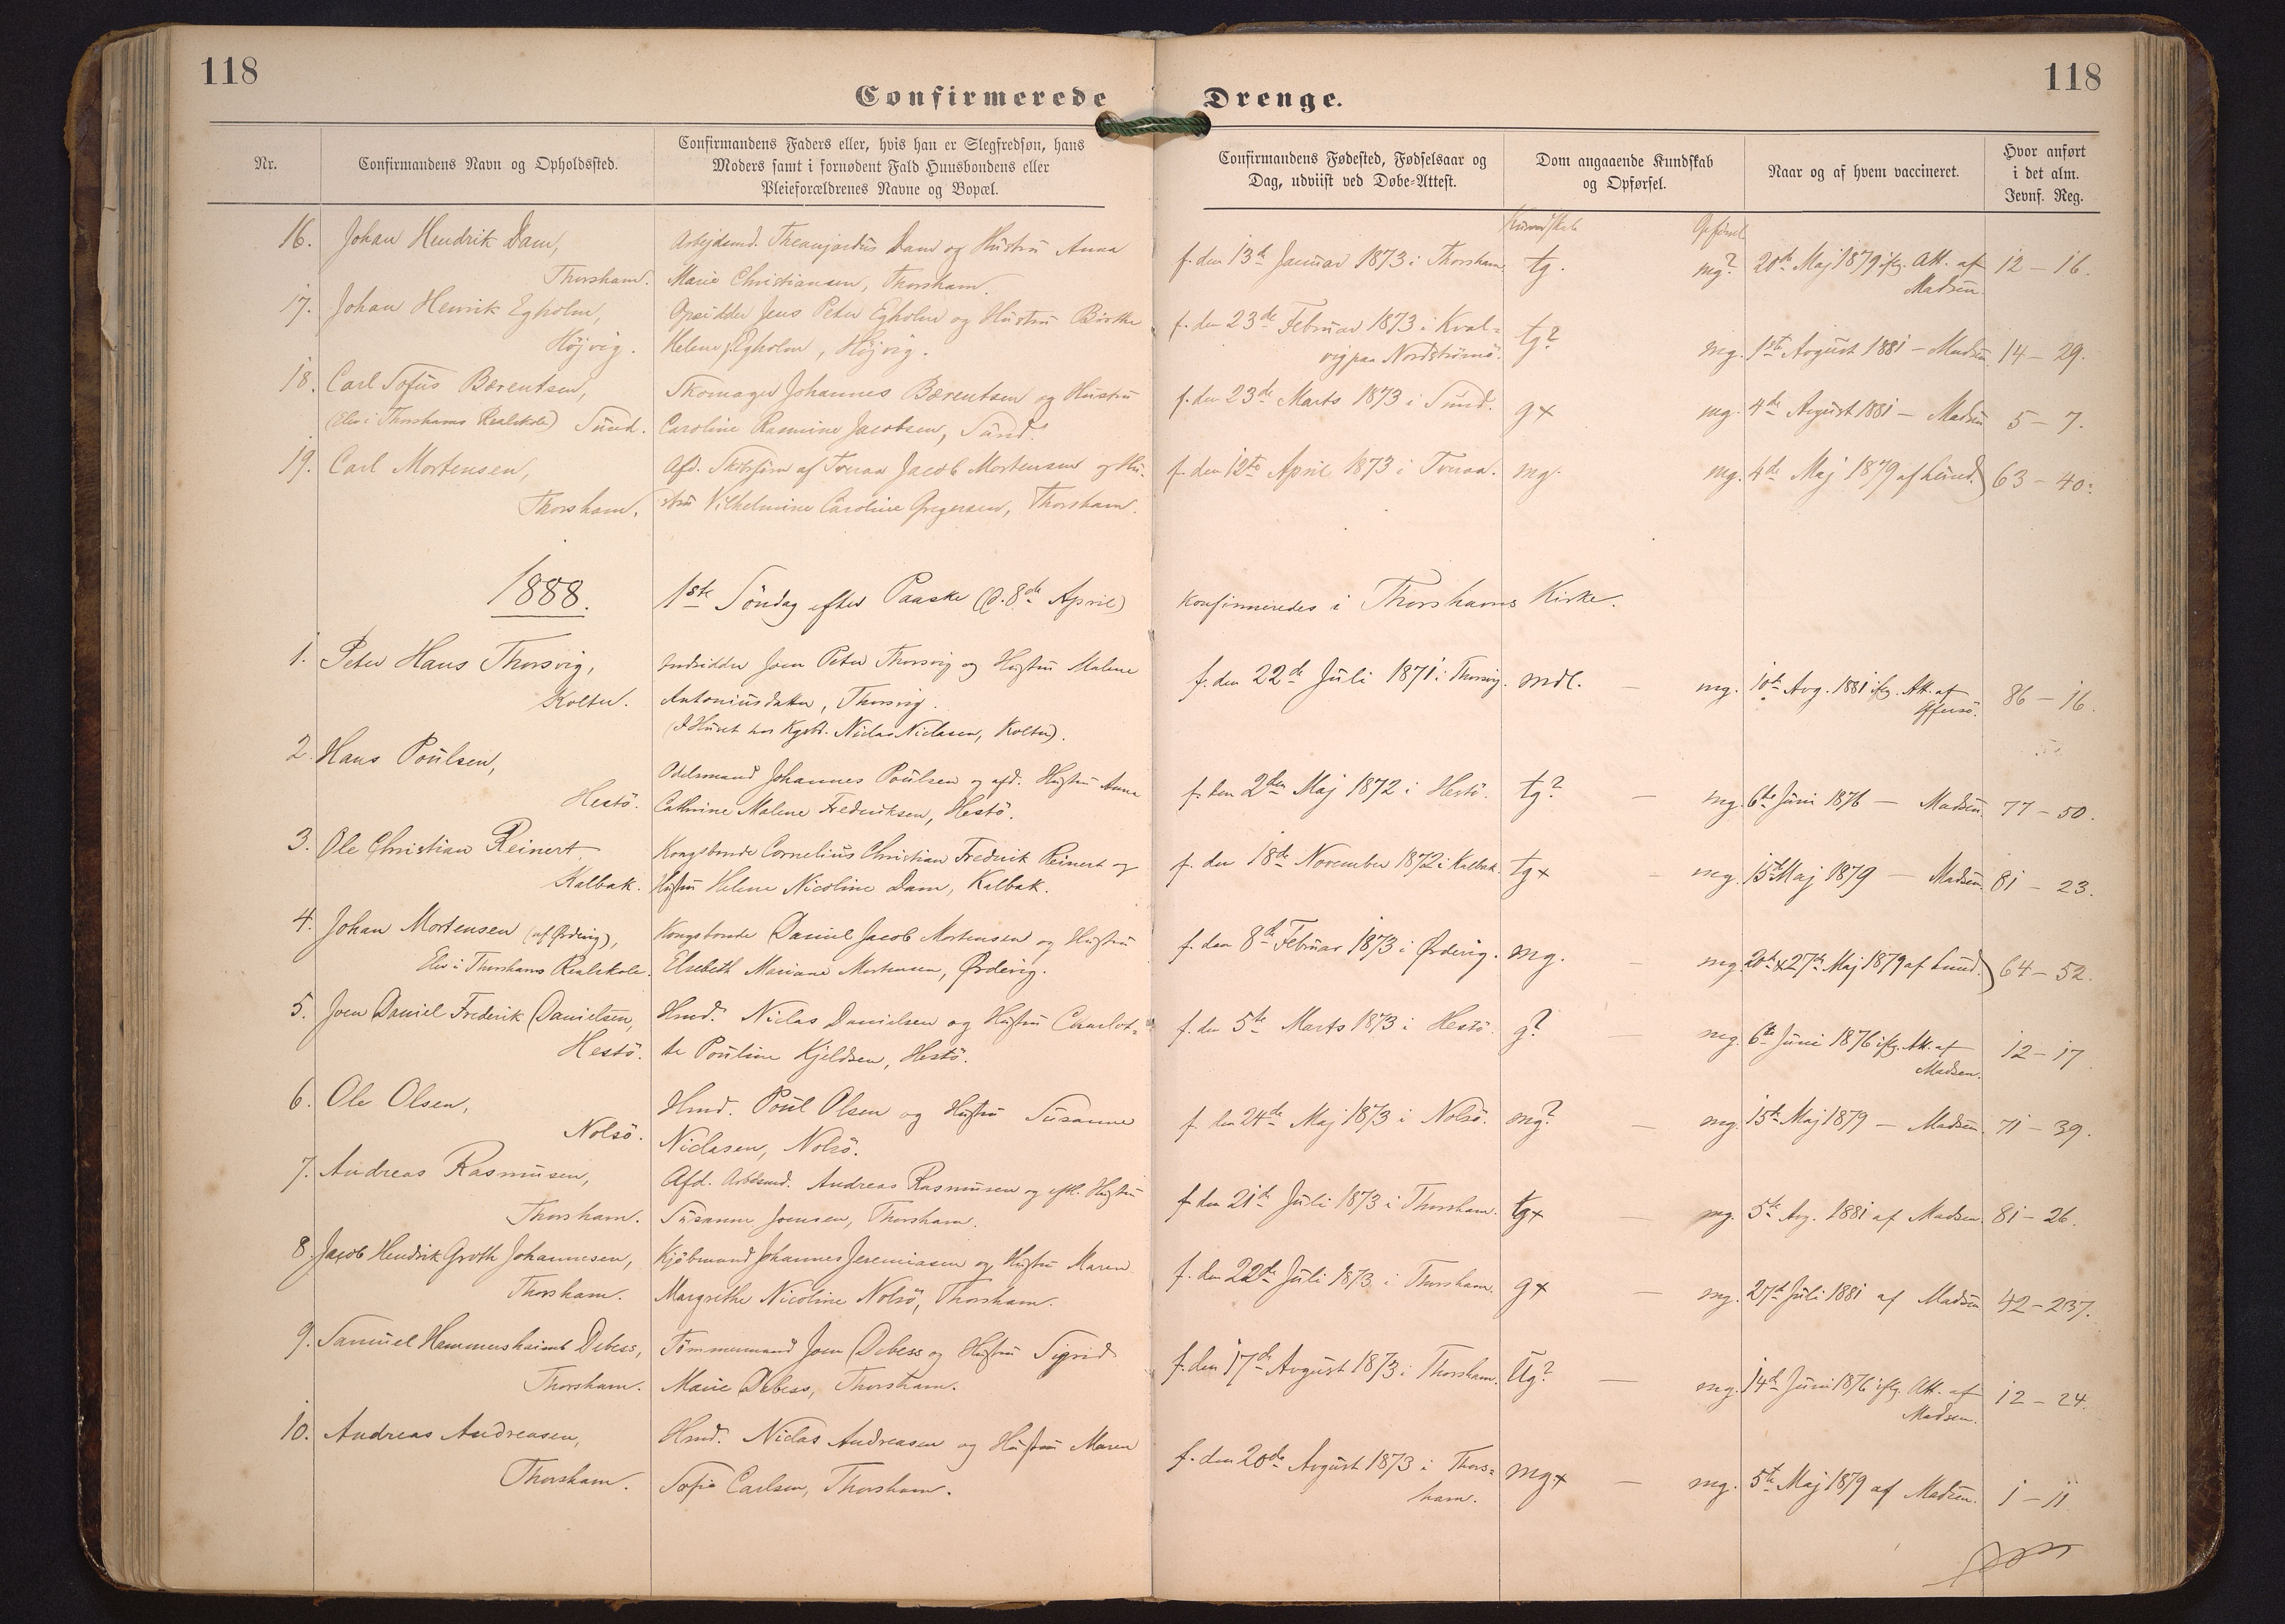 118
118
Confirmerede Drenge.
Nr.
Confirmandens Navn og Opholdssted.
Confirmandens Faders eller, hvis han er Slegfredsøn, hans
Moders samt i fornødent Fald Huusbondens eller
Pleieforældrenes Navne og Bopæl.
Confirmandens Fødested, Fødselsaar og
Dag, udviist ved Døbe-Attest.
Dom angaaende Kundskab
og Opførsel.
Naar og af hvem vaccineret.
Hvor anført
i det alm.
Jevnf. Reg.
Kundskab Opførsel
16. Johan Hendrik Dam,
Thorshavn.
Arbejdsmd. Dam og Hustru Anna
Marie Christiansen, Thorshavn.
f. den 13de Januar 1873 i Thorshavn.
tg. mg?
20de Maj 1879 iflg. Att. af
Madsen.
12 – 16.
17. Johan Henrik Egholm,
Höjvig.
Opsidder Jens Peter Egholm og Hustru Birthe
Helene f. Egholm, Höjvig.
f. den 23de Februar 1873 i Kval=
vig paa Nordströmö.
tg? mg.
1ste Avgust 1881 – Madsen
14 – 29.
18. Carl Sofus Bærentsen,
(Elev i Thorshavns Realskole) Sund.
Skomager Johannes Bærentsen og Hustru
Caroline Rasmine Jacobsen, Sund.
f. den 23de Marts 1873 i Sund.
g+ mg.
4de Avgust 1881 – Madsen
5 – 7.
19. Carl Mortensen,
Thorshavn.
Afd. af Tveraa Jacob Mortensen og Hu-
stru Vilhelmine Caroline Gregersen, Thorshavn.
f. den 12te April 1873 i Tveraa.
mg. mg.
4de Maj 1879 af Lund.)
63 – 40.
1888.
1ste Söndag efter Paaske (d. 8de April)
konfirmeredes i Thorshavns Kirke.
1. Peter Hans Thorsvig,
Kolter.
Indsidder Joen Peter Thorsvig og Hustru Malene
Antoniusdatter, Thorsvig.
(I Huset hos Kgsbd. Niclas Niclasen, Kolter).
f. den 22de Juli 1871 i Thorsvig.
mdl. – mg.
10de Avg. 1881 iflg. Att. af
86 – 16.
2. Hans Poulsen,
Hestö.
Odelsmand Johannes Poulsen og afd. Hustru Anna
Cathrine Malene Frederiksen, Hestö.
f. den 2den Maj 1872 i Hestö.
tg? – mg.
6te Juni 1876 – Madsen.
77 – 50.
3. Ole Christian Reinert
Kalbak.
Kongsbonde Cornelius Christian Frederik Reinert og
Hustru Helene Nicoline Dam, Kalbak.
f. den 18de November 1872 i Kalbak.
tg+ – mg.
15de Maj 1879 – Madsen.
81 – 23.
4. Johan Mortensen (af Ørdevig),
Elev i Thorshavns Realskole.
Kongsbonde Daniel Jacob Mortensen og Hustru
Elsebeth Mariane Mortensen, Ørdevig.
f. den 8de Februar 1873 i Ørdevig.
mg. – mg.
20de + 27de Maj 1879 af Lund.)
64 – 52.
5. Joen Daniel Frederik Danielsen,
Hestö.
Hmd. Niclas Danielsen og Hustru Charlot=
te Pouline Kjeldsen, Hestö.
f. den 5te Marts 1873 i Hestö.
g? – mg.
6te Juni 1876 iflg. Att. af
Madsen.
12 – 17
6. Ole Olsen,
Nolsö.
Hmd. Poul Olsen og Hustru Susanne
Niclasen, Nolsö.
f. den 24de Maj 1873 i Nolsö.
mg? – mg.
15de Maj 1879 – Madsen.
71 – 39.
7. Andreas Rasmusen,
Thorshavn.
Afd. Arbdsmd. Andreas Rasmusen og eftl. Hustru
Susanne Joensen, Thorshavn.
f. den 21de Juli 1873 i Thorshavn.
tg+ – mg.
5te Avg. 1881 af Madsen.
81 – 26.
8. Jacob Hendrik Groth Johannesen,
Thorshavn.
Kjöbmand Johannes Jeremiasen og Hustru Maren
Margrethe Nicoline Nolsö, Thorshavn.
f. den 22de Juli 1873 i Thorshavn.
g+ – mg.
27de Juli 1881 af Madsen
42 – 237.
9. Samuel Hammershaimb Debess,
Thorshavn.
Tömmermand Joen Debess og Hustru Sigrid
Marie Debess, Thorshavn.
f. den 17de Avgust 1873 i Thorshavn.
Ug? – mg.
14de Juni 1876 iflg. Att. af
Madsen.
12 – 24.
10. Andreas Andreasen,
Thorshavn.
Hmd. Niclas Andreasen og Hustru Maren
Sofie Carlsen, Thorshavn.
f. den 20de Avgust 1873 i Thors=
havn.
mg+ – mg.
5te Maj 1879 af Madsen.
1 – 11